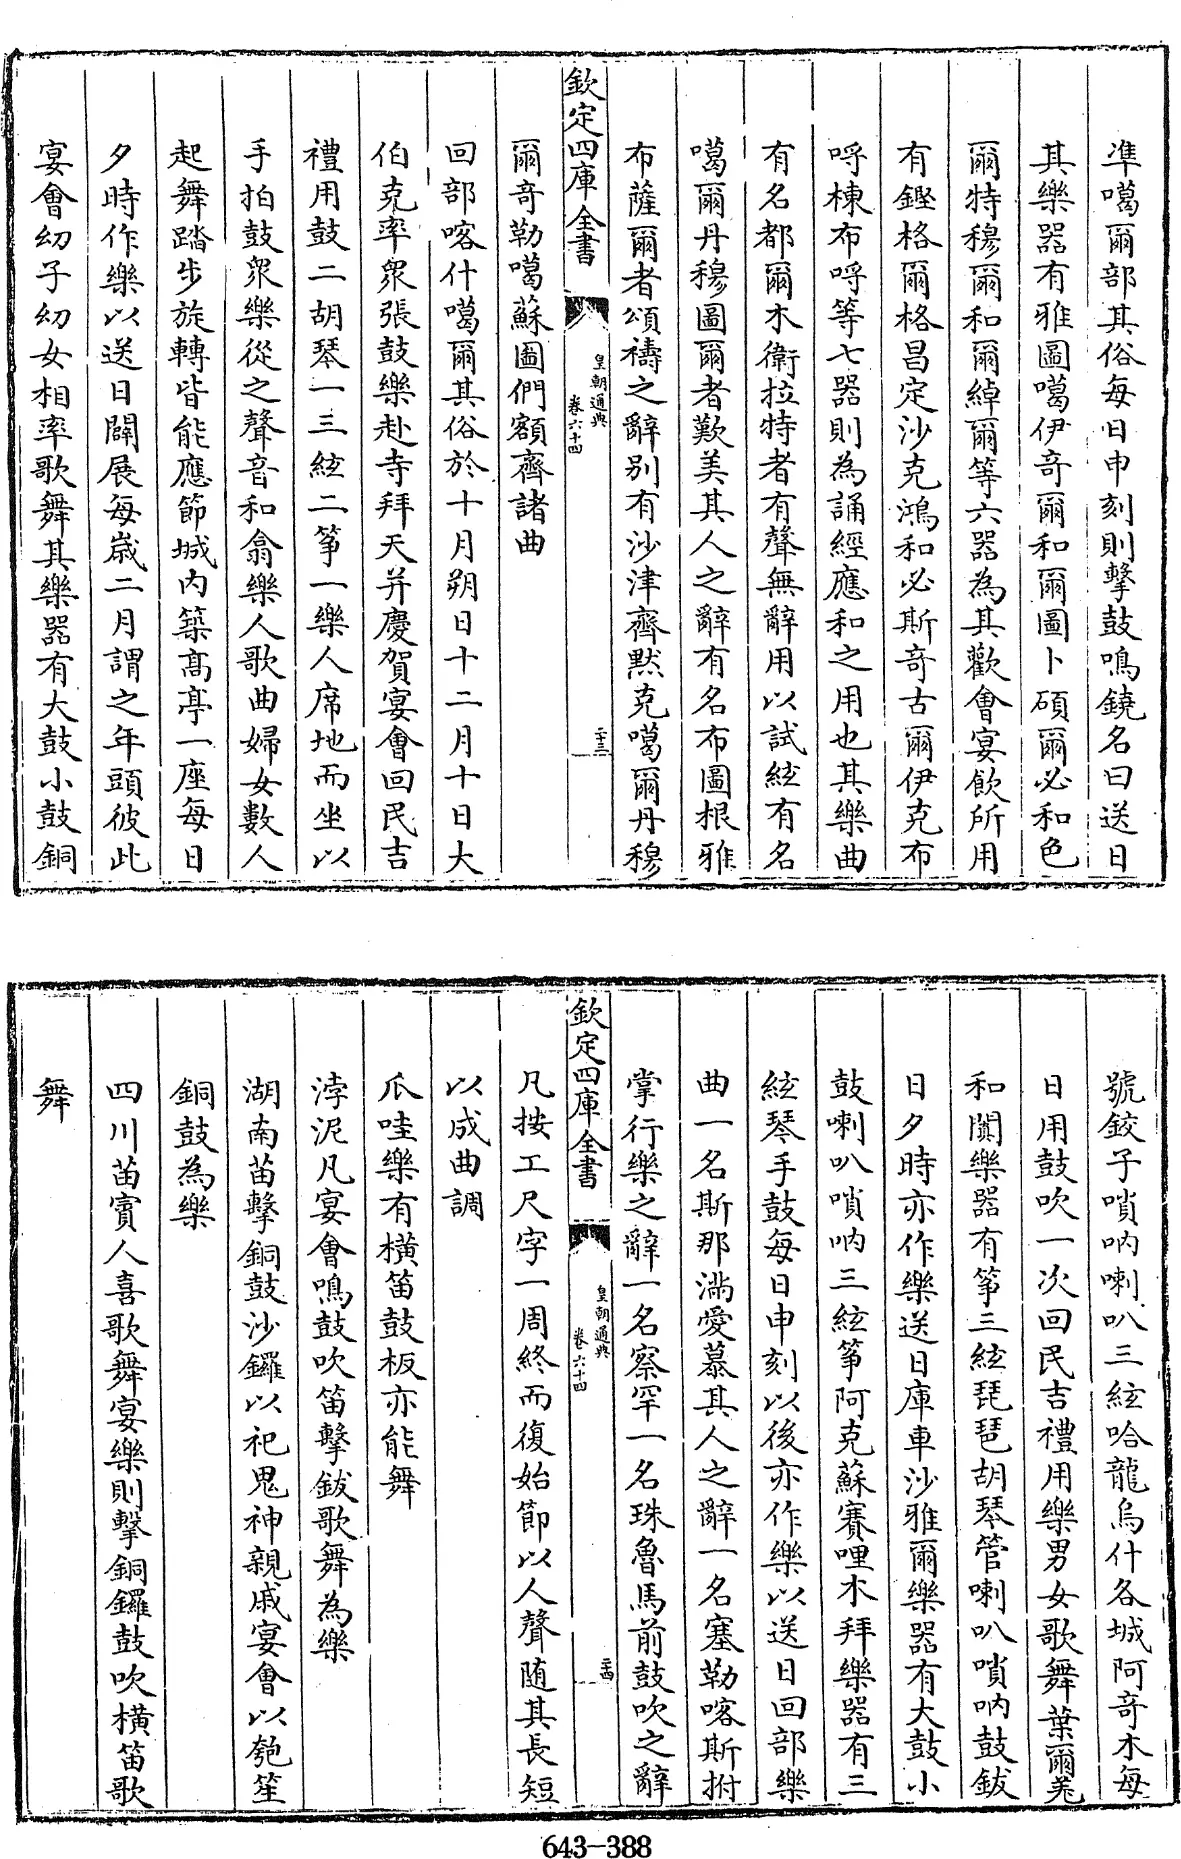 準噶爾部其俗每日申刻則擊鼓鳴鐃名曰送日
其樂器有雅圖噶伊奇爾和爾圖卜碩爾必和色
爾特穆爾和爾綽爾等六器為其歡會宴飲所用
有鏗格爾格昌定沙克鴻和必斯奇古爾伊克布
哷棟布哷等七器則為誦經應和之用也其樂曲
有名都爾木衛拉特者有聲無辭用以試絃有名
噶爾丹穆圖爾者歎美其人之辭有名布圖根雅
布薩爾者頌禱之辭别有沙津齊默克噶爾丹穆
欽定四庫全書
皇朝通典
卷六十四
二十三
爾奇勒噶蘇圖們額齊諸曲
回部喀什噶爾其俗於十月朔日十二月十日大
伯克率衆張鼓樂赴寺拜天并慶賀宴會回民吉
禮用鼓二胡琴一三絃二箏一樂人席地而坐以
手拍鼓衆樂從之聲音和翕樂人歌曲婦女數人
起舞踏步旋轉皆能應節城内築髙亭一座每日
夕時作樂以送日闢展每嵗二月謂之年頭彼此
宴會幼子幼女相率歌舞其樂器有大鼓小鼓銅
號鉸子嗩吶喇叭三絃哈龍烏什各城阿奇木每
日用鼓吹一次回民吉禮用樂男女歌舞葉爾羌
和闐樂器有箏三絃琵琶胡琴管喇叭嗩吶鼓鈸
日夕時亦作樂送日庫車沙雅爾樂器有大鼓小
鼓喇叭嗩吶三絃箏阿克蘇賽哩木拜樂器有三
絃琴手鼓每日申刻以後亦作樂以送日回部樂
曲一名斯那滿愛慕其人之辭一名塞勒喀斯拊
掌行樂之辭一名察罕一名珠魯馬前鼓吹之辭
欽定四庫全書
皇朝通典
卷六十四
二十四
凡按工尺字一周終而復始節以人聲随其長短
以成曲調
爪哇樂有橫笛鼓板亦能舞
浡泥凡宴會鳴鼓吹笛擊鈸歌舞為樂
湖南苗擊銅鼓沙鑼以祀鬼神親戚宴會以匏笙
銅鼓為樂
四川苗賓人喜歌舞宴樂則擊銅鑼鼓吹橫笛歌
舞
643-388